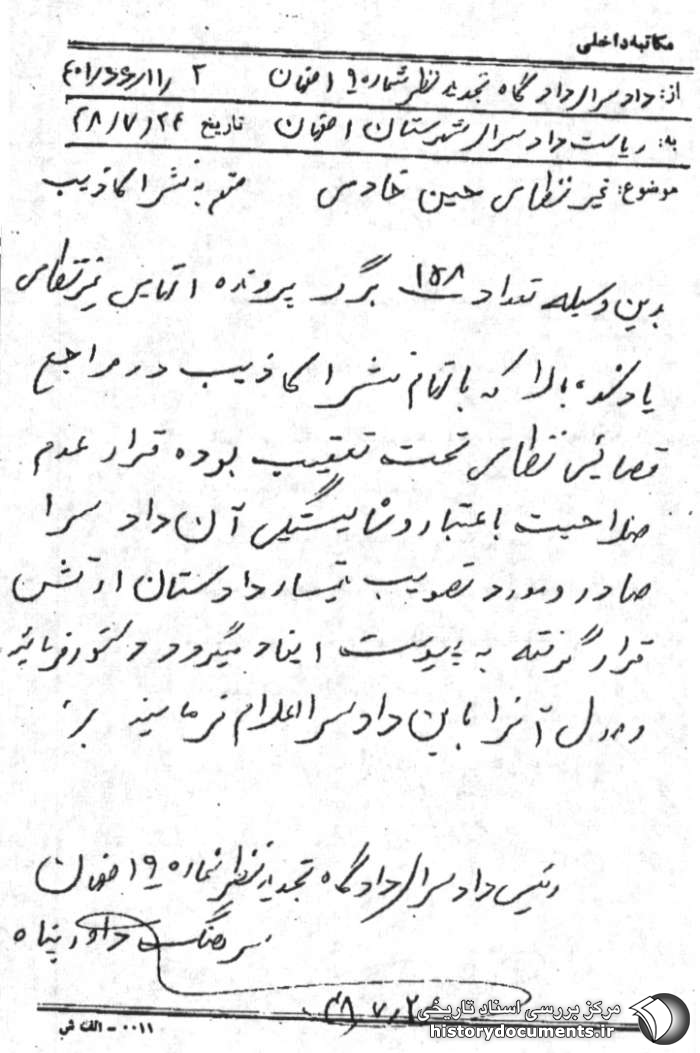 مکاتبه داخلی
از: دادسرای دادگاه تجدید نظر شماره ۹ اصفهان
به: ریاست دادسرای شهرستان اصفهان تاریخ ۴۸/۷/۲۶
موضوع: غیر نظامی حسین خادمی متهم به نشر اکاذیب
بدین وسیله تعداد ۱۵۸ برگ پرونده اتهامی غیر نظامی
یاد شده بالا که باتهام نشر اکاذیب در مراجع
قضائی نظامی تحت تعقیب بوده قرار عدم
صلاحیت باعتبار و شایستگی آن دادسرا
صادر و مورد تصویب تیمسار دادستان ارتش
قرار گرفته به پیوست ایفاد میگردد دستور فرمائید
وصول آنرا باین دادسرا اعلام نمایند
رئیس دادسرای دادگاه تجدید نظر شماره ۹ اصفهان
سرهنگ داور پناه
۰۰۱۱ - الف ش
مرکز بررسی اسناد تاریخی
historydocuments.ir